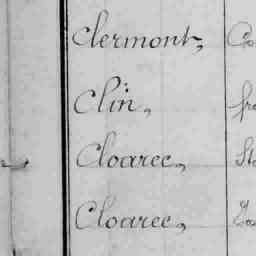 Clermont,
Clin,
Cloarec,
Cloarec,